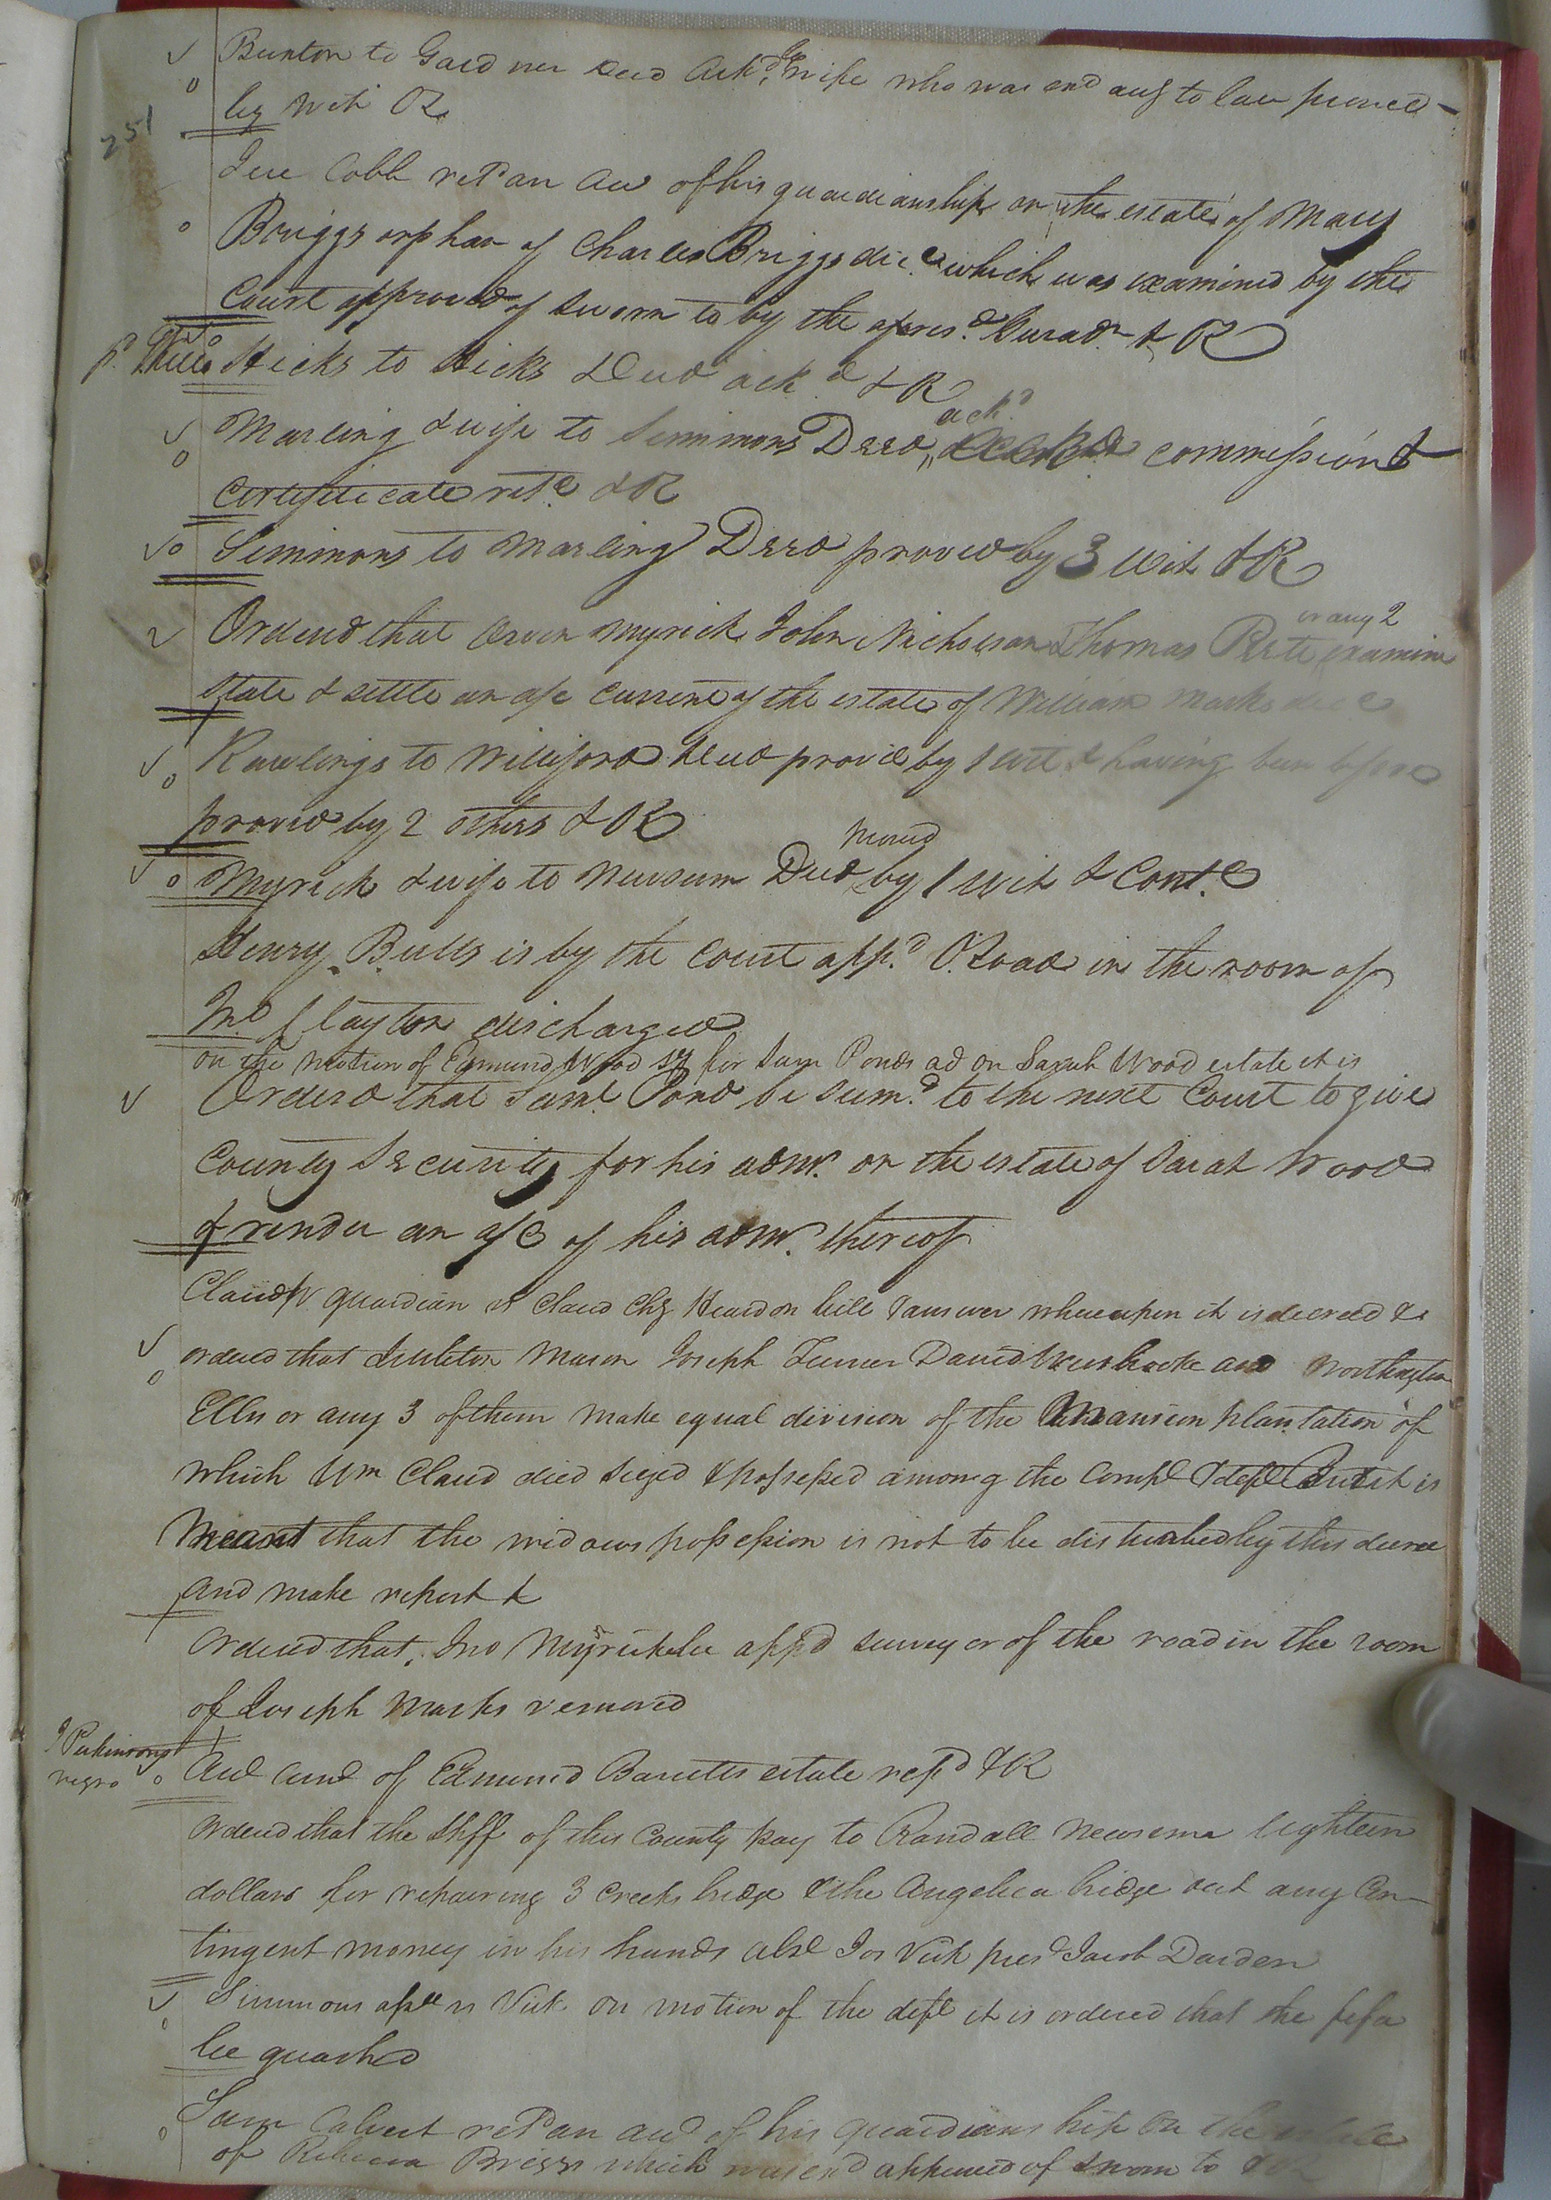 Bunton to Gardner Deed Ackd, wife who was exd accg to law proved
by wit OR
251
Jere Cobb retd an acc of his guardianship on the estate of Mary
Briggs orphan of Charles Briggs dec.d which was examined by the
Court approved of sworn to by the afores.d Guard.n & R
Hicks to Hicks Deed ack.d & R
Marling & wife to Simmons Deed, ack.d commission &
Certificate ret.d & R
Simmons to Marling Deed proved by 3 Wit & R
Ordered that Owen Myrick John Nicholson & Thomas Pete or any 2 examine
State & settle an a/c current of the estate of William Marks decd
Rawlings to Williford Deed proved by 1 wit & having been before
proved by 2 others & R
Myrick & wife to Newsum Deed proved by 1 Wit & Cont.d
Henry Butts is by the Court app.d O. Road in the room of
Clayton discharged
on the motion of Edmund Wood sy for Sam Ponds ad on Sarah Wood estate it is
Ordered that Saml. Pond be sum.d to the next Court to give
County Security for his adm. on the estate of Sarah Wood
& render an a/c of his adm. thereof
Claud guardian vs Claud Chy Heard on bill & answer whereupon it is decreed &
ordered that Littleton Mason Joseph Turner David Westbrooke and Worthington
Ellis or any 3 of them make equal division of the Mansion plantation of
which Wm Claud died siezed & possessed among the Compl & deft But it is
Meant that the widows possession is not to be disturbed by this decree
and make report &
Ordered that Jno Myrick be appd surveyor of the road in the room
of Joseph Marks removed
J Parkinsons
negro
Aud accd of Edmund Baretts estate retd & R
Ordered that the Shff of this County pay to Randall Newsome Eighteen
dollars for repairing 3 Creeks bridge & the Angelica bridge out any Con-
tingent money in his hands absd Jos Vick presd Jacob Darden
Simmons apllt vs Vick On motion of the deft it is ordered that the fifa
be quashed
Sam Calvert retd an accd of his guardianship on the estate
of Rebecca Briggs which was exd approved of sworn to & R